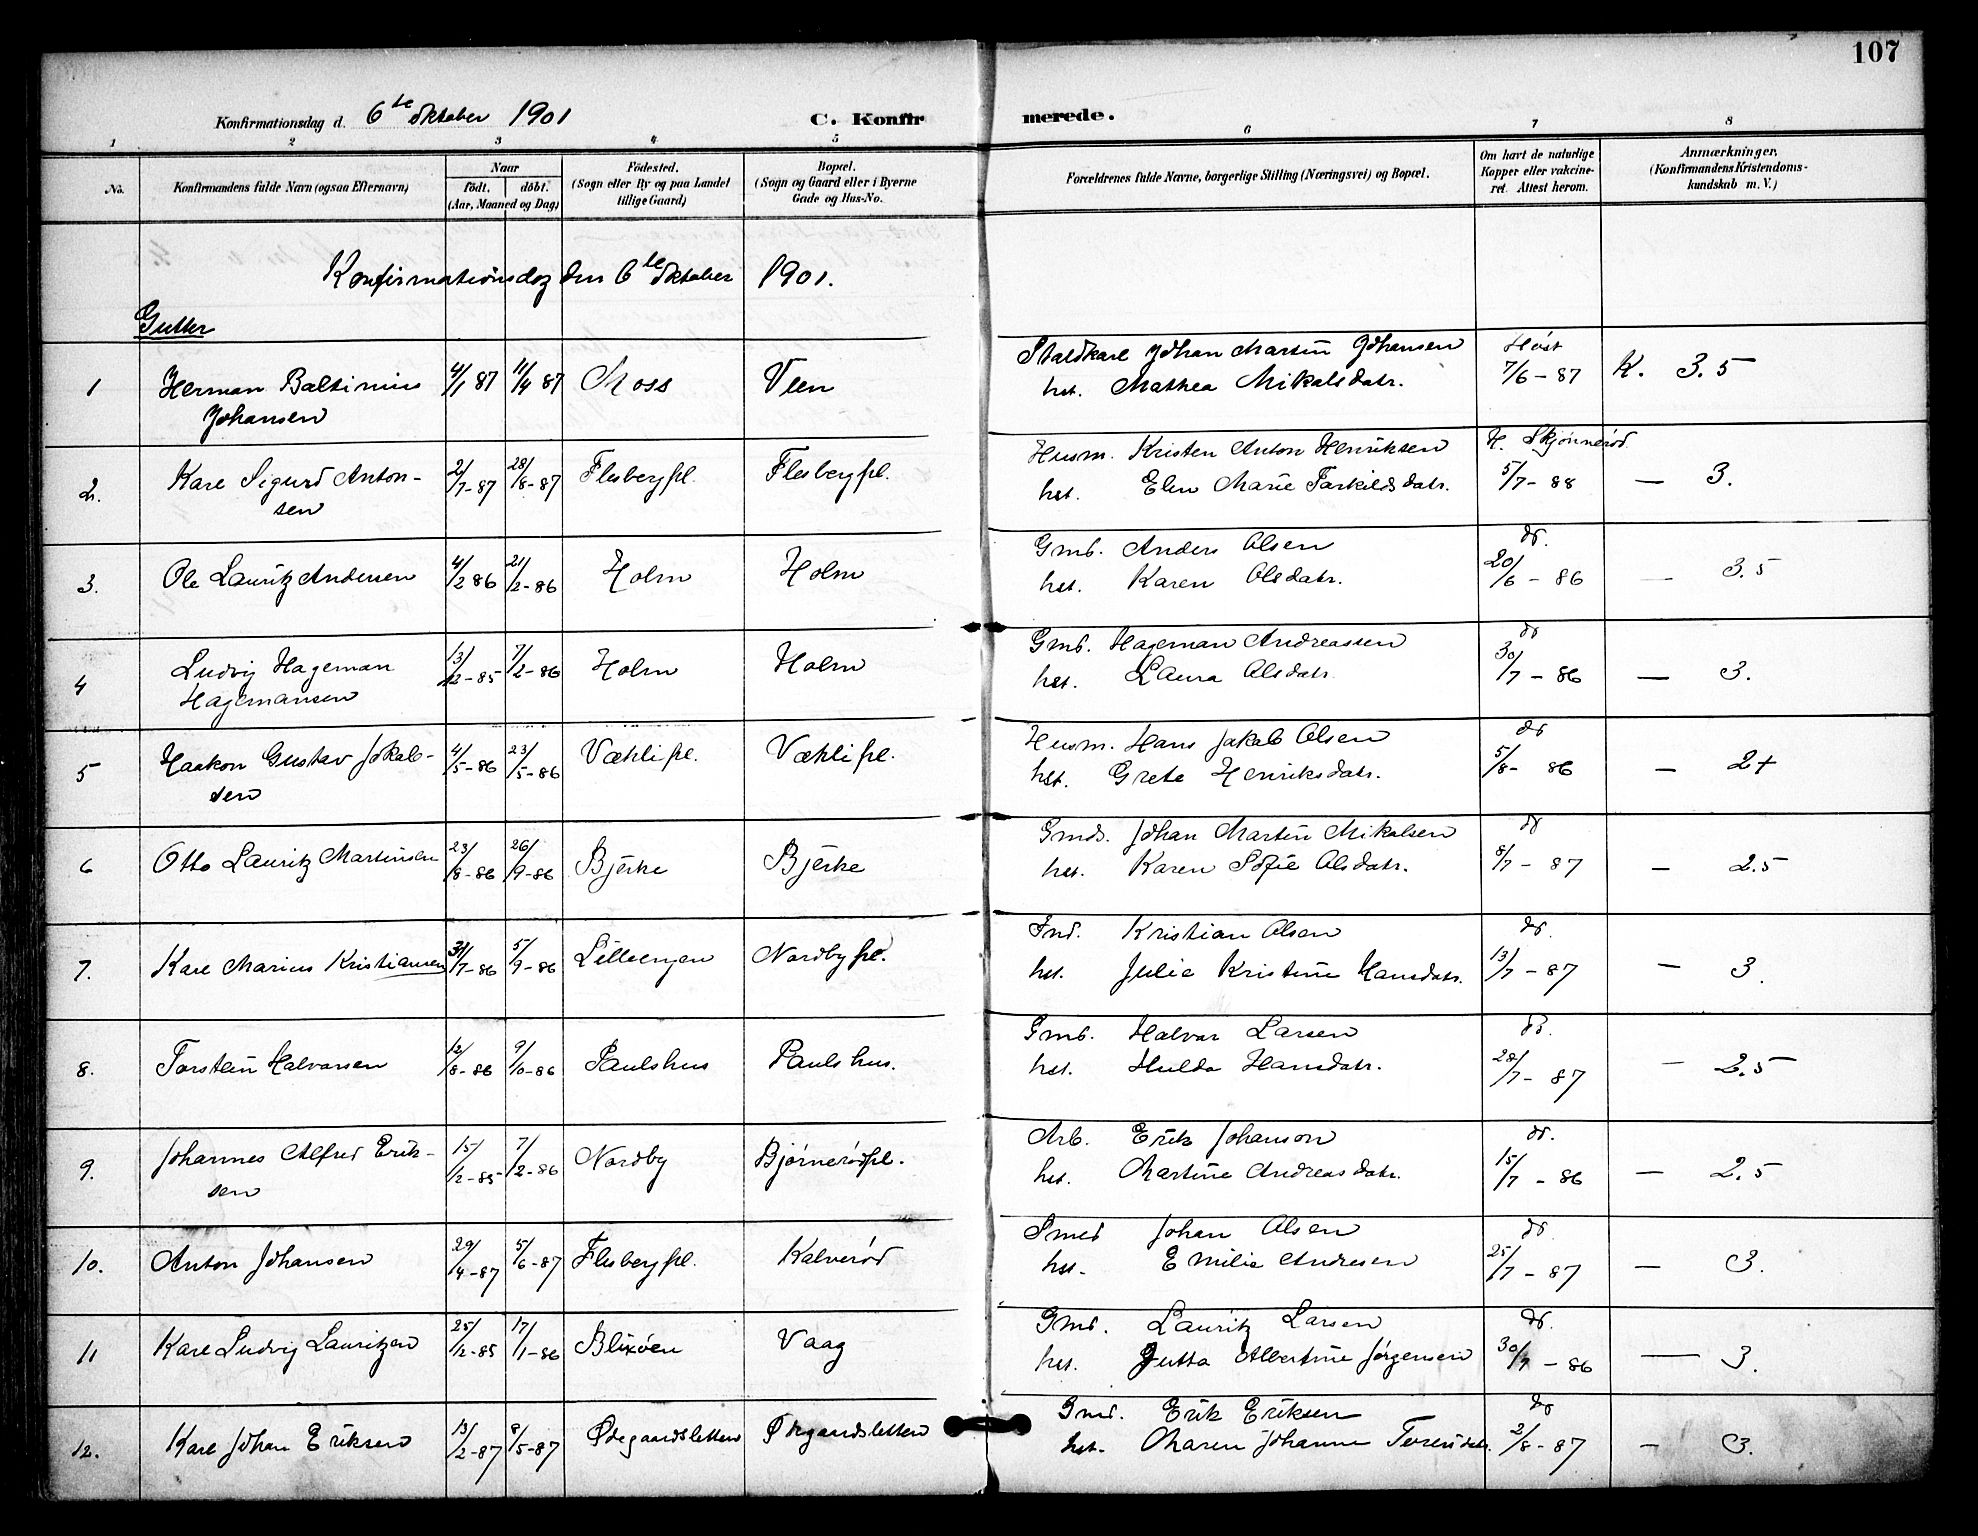 107
Konfirmationsdag d. 6te Oktober 1901
C. Konfirmerede.
1 2 3 4 5 6 7 8
No.
Konfirmandens fulde Navn (ogsaa Efternavn)
Naar
födt. döbt.
(Aar, Maaned og Dag)
Födested.
(Sogn eller By og paa Landet
tillige Gaard)
Bopæl.
(Sogn og Gaard eller i Byerne
Gade og Hus-No.
Forældrenes fulde Navne, borgerlige Stilling (Næringsvei) og Bopæl.
Om havt de naturlige
Kopper eller vakcine-
ret. Attest herom.
Anmærkninger.
(Konfirmandens Kristendoms-
kundskab m. V.)
Konfirmationsdag den 6te Oktober 1901.
Gutter
1 Herman Baltinius
Johansen
4/1 87 11/4 87 Moss Veen
Staldkarl Johan Martin Johansen
hst. Mathea Mikalsdatr.
Høst
7/6 - 87 K. 3.5
2. Karl Sigurd Anton-
sen
2/7-87 28/8-87 Flesbergpl. Flesbergpl.
Husm. Kristen Anton Henriksen
hst. Elen Marie Tarkildsdatr.
H. Skjønnerød
5/7 - 88 — 3.
3. Ole Lauritz Andersen
4/2 86 21/2-86 Holm Holm
Gmb. Anders Olsen
hst. Karen Olsdatr.
do.
20/6 - 86 — 3.5
4 Ludvig Hageman
Hagemansen
13/12-85 7/2-86 Holm Holm
Gmb. Hageman Andreassen
hst. Laura Olsdatr.
do
30/7 - 86 — 3.
5 Haakon Gustav Jakob-
sen
4/5-86 23/5-86 Væhlipl. Væhlipl.
Husm. Hans Jakob Olsen
hst. Grete Henriksdatr.
do
5/8- 86 — 2+
6 Otto Lauritz Martinsen
23/8-86 26/9-86 Bjerke Bjerke
Gmds. Johan Martin Mikalsen
hst. Karen Sofie Olsdatr.
do
8/7 - 87 — 2.5
7. Karl Marius Kristiansen
31/7-86 5/9-86 Lilleengen Nordbypl.
Ind. Kristian Olsen
hst. Julie Kristine Hansdatr.
do.
13/7 - 87 — 3.
8. Torstein Halvorsen
12/8-86 9/10-86 Paulshus Paulshus.
Gmb. Halvor Larsen
hst. Hulda Hansdatr.
do.
28/7 - 87 — 2.5
9. Johannes Alfred Erik-
sen
15/12-85 7/2-86 Nordby Bjørnerødpl.
Arb. Erik Johanson
hst. Martine Andreasdatr.
do.
15/7 - 86 — 2.5
10. Anton Johansen
29/4-87 5/6-87 Flesbergpl. Kalverød
Smed Johan Olsen
hst. Emilie Andresen
do
25/7 - 87 — 3.
11 Karl Ludvig Lauritzen
25/12-85 17/1-86 Blixöen Vaag
Gmd. Lauritz Larsen
hst. Jutta Albertine Jørgensen
do.
30/7 - 86 — 3.
12. Karl Johan Eriksen
13/2-87 8/5-87 Ødegaardsletten Ødegaardsletten
Gmd. Erik Eriksen
hst. Maren Johanne
do
2/8 - 87 — 3.